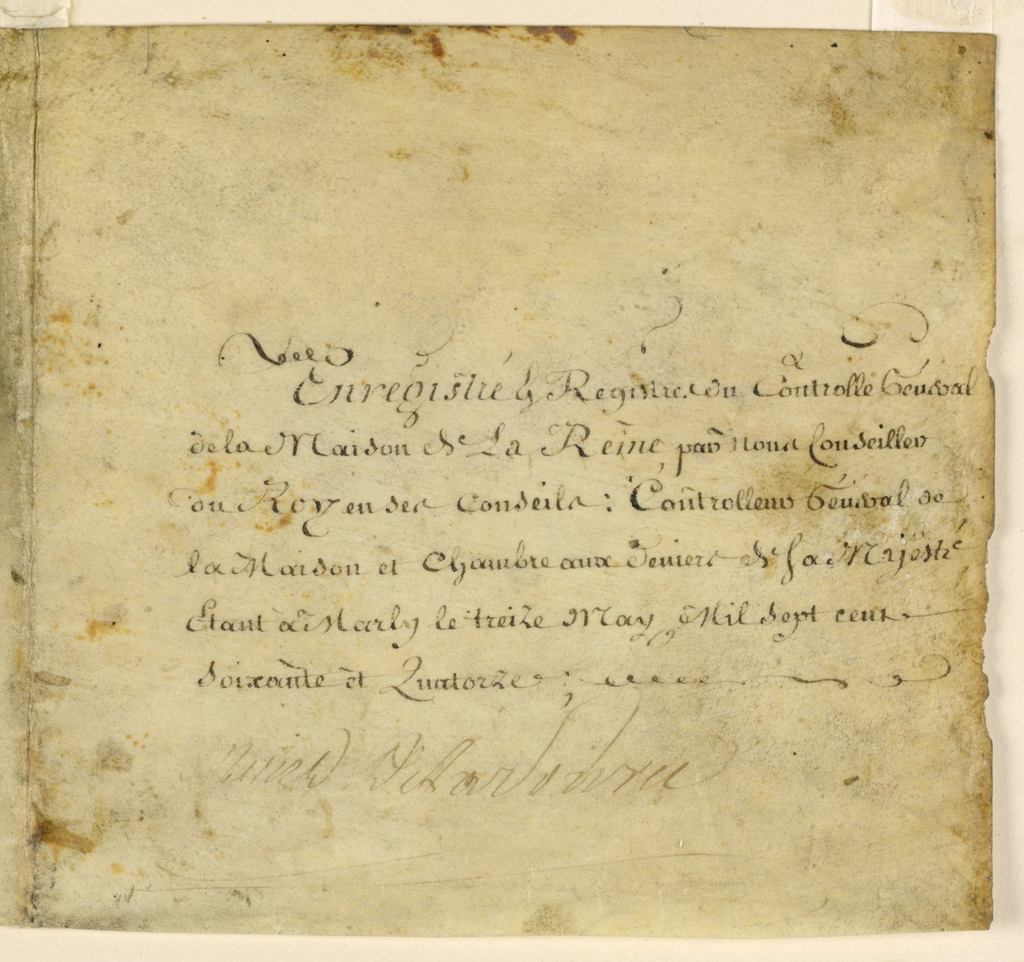 Enregistré ez Registres du Controlle Général
de la Maison de La Reine par nous Conseiller
du Roy en ses Conseils : Controlleur Général de
la Maison et Chambre aux deniers de Sa Majesté
Etant à Marly le treize May Mil sept cent
soixante et Quatorze ;